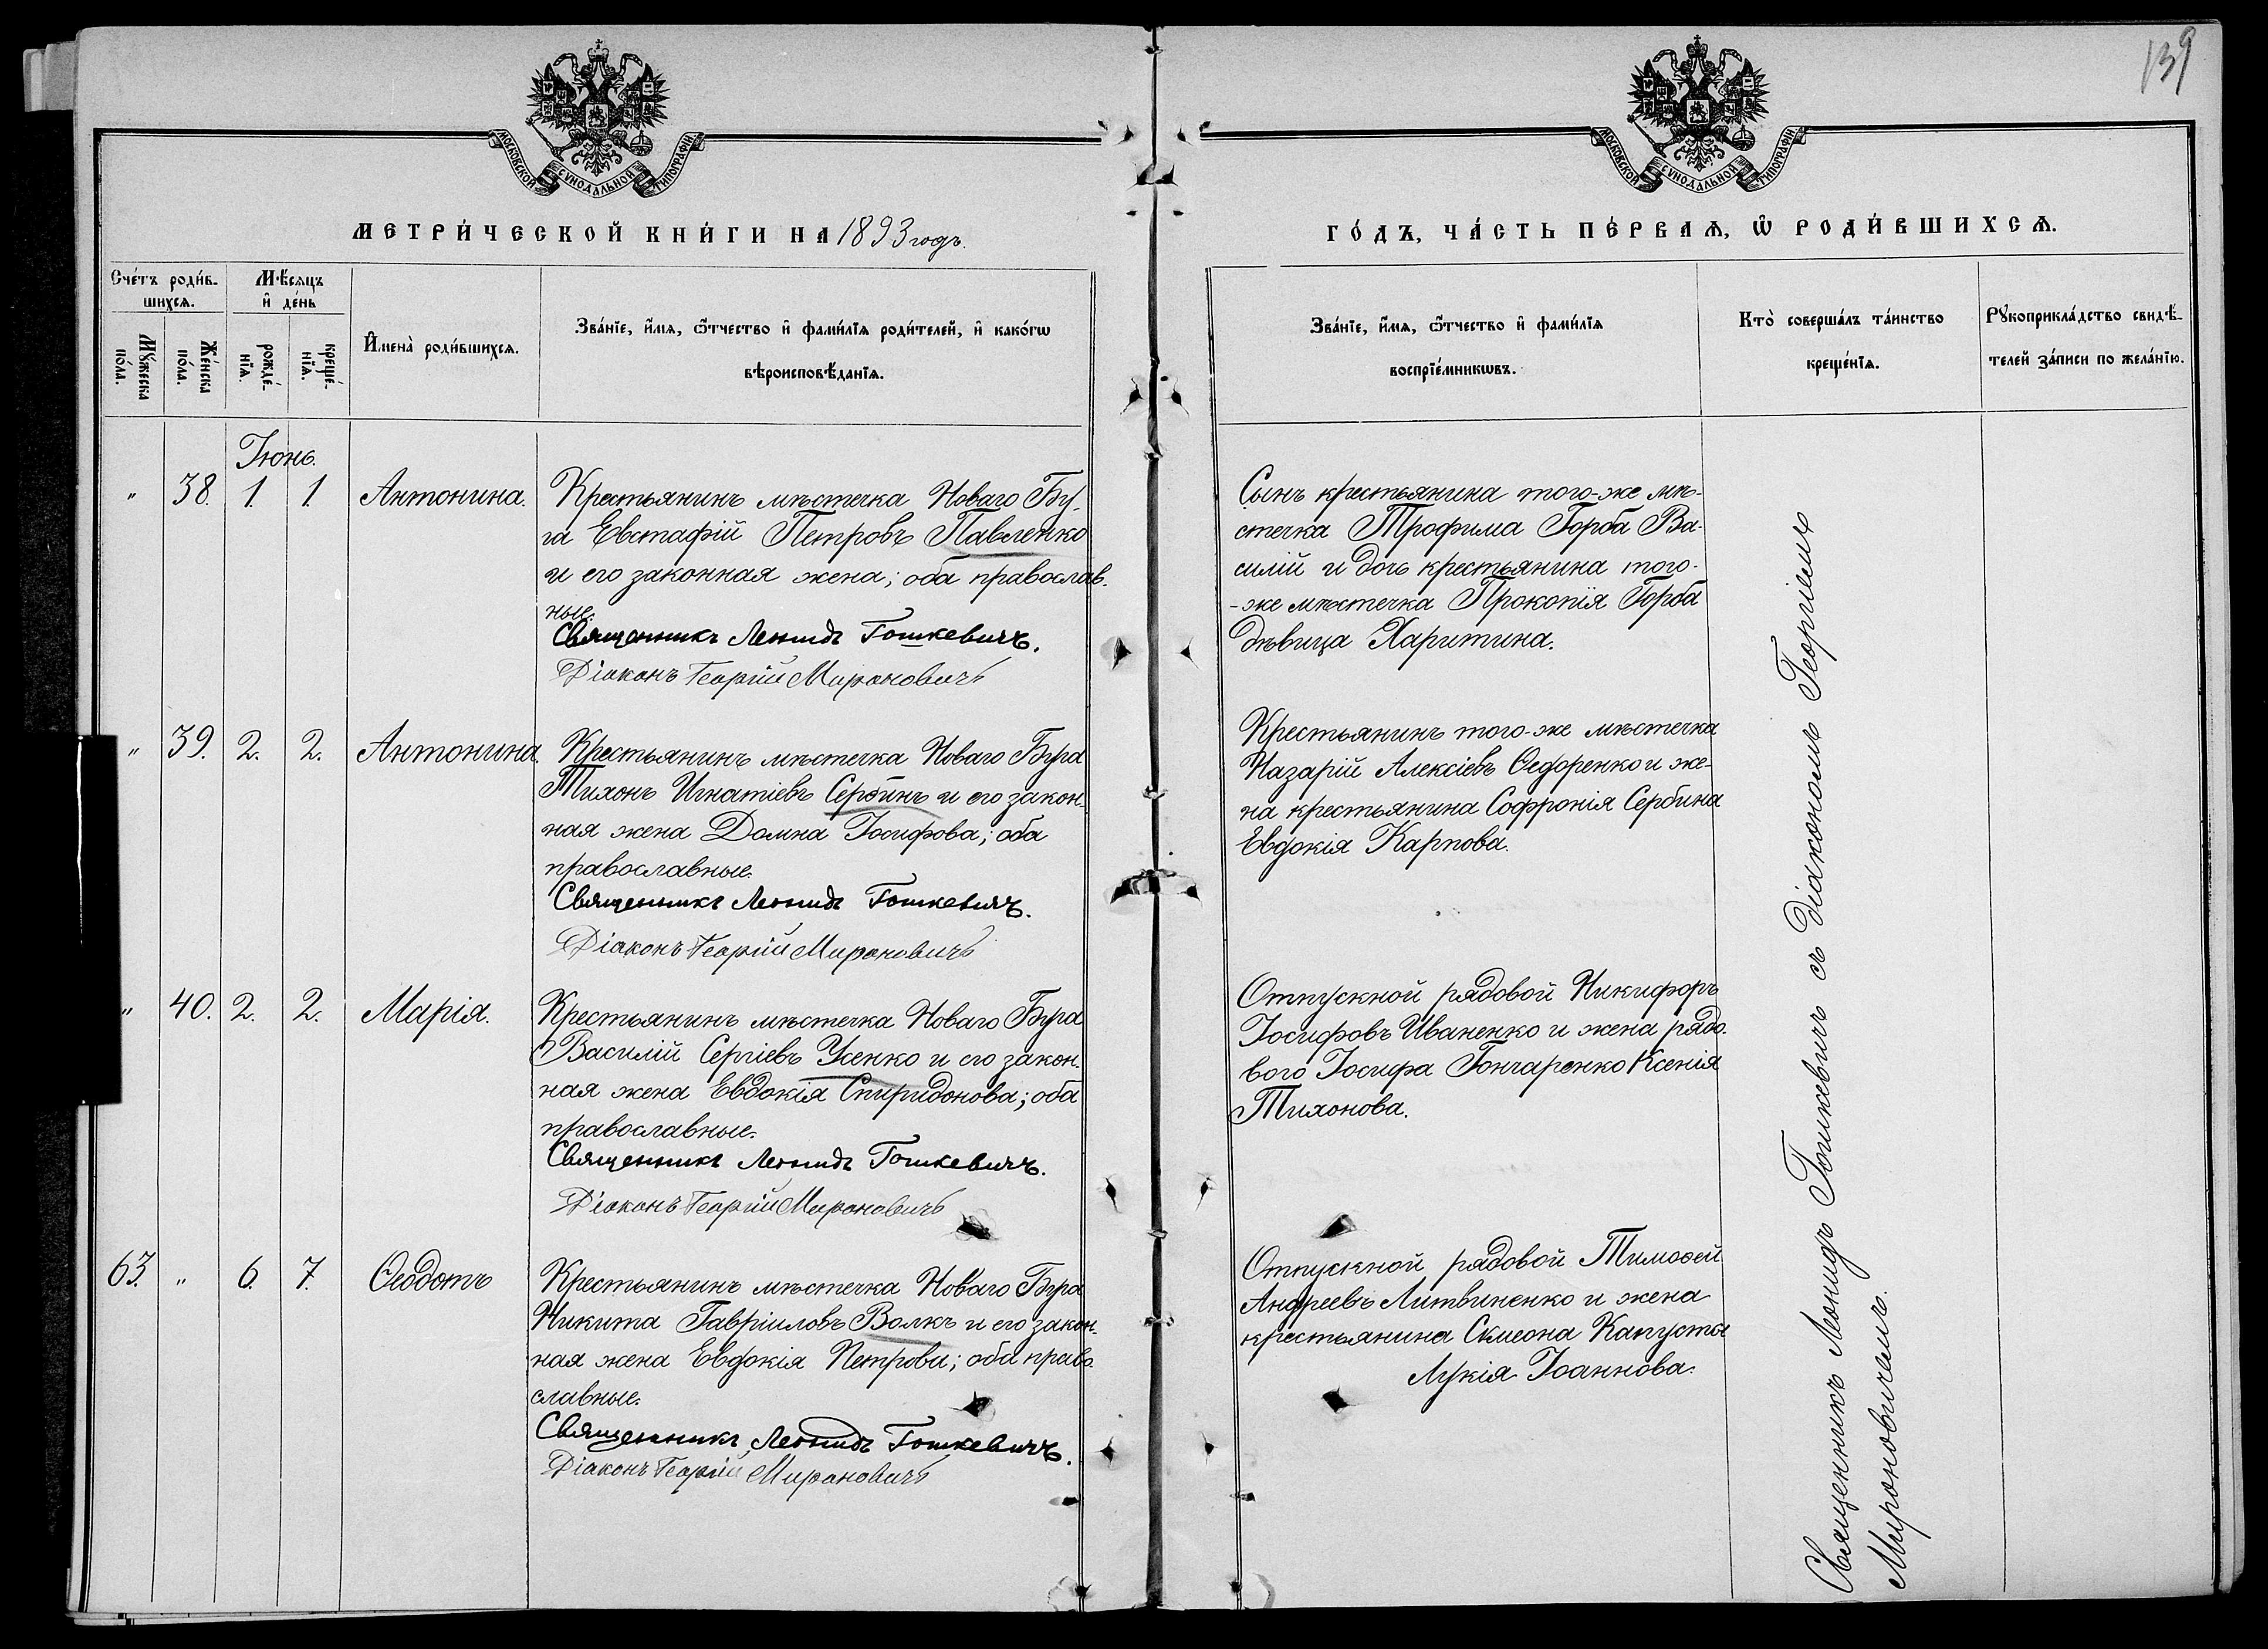 139
МОСКОВСКОЙ СѴНОДАЛЬНОЙ ТИПОГРАФІИ
МОСКОВСКОЙ СѴНОДАЛЬНОЙ ТИПОГРАФІИ
МЕТРИ́ЧЕСКОЙ КНИ́ГИ НА 1893 годъ.
ГО́ДЪ, ЧА́СТЬ ПЕ́РВАѦ, Ѽ РОДИ́ВШИХСѦ.
Сче́тъ роди́в-
шихсѧ.
Мꙋ́жеска
по́ла.
Же́нска
по́ла.
Мѣ́сѧцъ
и҆ де́нь
рожде́-
нїѧ.
креще́-
нїѧ.
И҆мена̀ роди́вшихсѧ.
Зва́нїе, и҆́мѧ, ѻ҆́тчество и҆ фами́лїѧ роди́телей, и҆ како́гѡ
вѣроисповѣ́данїѧ.
Зва́нїе, и҆́мѧ, ѻ҆́тчество и҆ фами́лїѧ
воспрїе́мникѡвъ.
Кто̀ соверша́лъ та́инство
креще́нїѧ.
Рꙋкоприкла́дство свидѣ́-
телей за́писи по жела́нїю.
Іюнь.
" 38. 1. 1. Антонина.
Крестьянинъ мѣстечка Новаго Бу-
га Евстафій Петровъ Павленко
и его законная жена; оба православ-
ные.
Священникъ Леонидъ Гошкевичъ.
Діаконъ Георгій Мироновичъ
Сынъ крестьянина того-же мѣ-
стечка Трофима Горба Ва-
силій и дочь крестьянина того-
-же мѣстечка Прокопія Горба
дѣвица Харитина.
" 39. 2. 2. Антонина.
Крестьянинъ мѣстечка Новаго Буга
Тихонъ Игнатіевъ Сербинъ и его закон-
ная жена Домна Іосифова; оба
православные.
Священникъ Леонидъ Гошкевичъ.
Діаконъ Георгій Мироновичъ
Крестьянинъ того-же мѣстечка
Назарій Алексіевъ Ѳедоренко и же-
на крестьянина Софронія Сербина
Евдокія Карпова.
" 40. 2. 2. Марія.
Крестьянинъ мѣстечка Новаго Буга
Василій Сергіевъ Усенко и его закон-
ная жена Евдокія Спиридонова; оба
православные.
Священникъ Леонидъ Гошкевичъ.
Діаконъ Георгій Мироновичъ
Отпускной рядовой Никифоръ
Іосифовъ Иваненко и жена рядо-
вого Іосифа Гончаренко Ксенія
Тихонова.
63. " 6. 7. Ѳеодотъ
Крестьянинъ мѣстечка Новаго Буга
Никита Гавріиловъ Волкъ и его закон-
ная жена Евдокія Петрова; оба право-
славные.
Священникъ Леонидъ Гошкевичъ.
Діаконъ Георгій Мироновичъ
Отпускной рядовой Тимоѳей
Андреевъ Литвиненко и жена
крестьянина Симеона Капусты
Лукія Іоаннова.
Священникъ Леонидъ Гошкевичъ съ діакономъ Георгіемъ
Мироновичемъ.